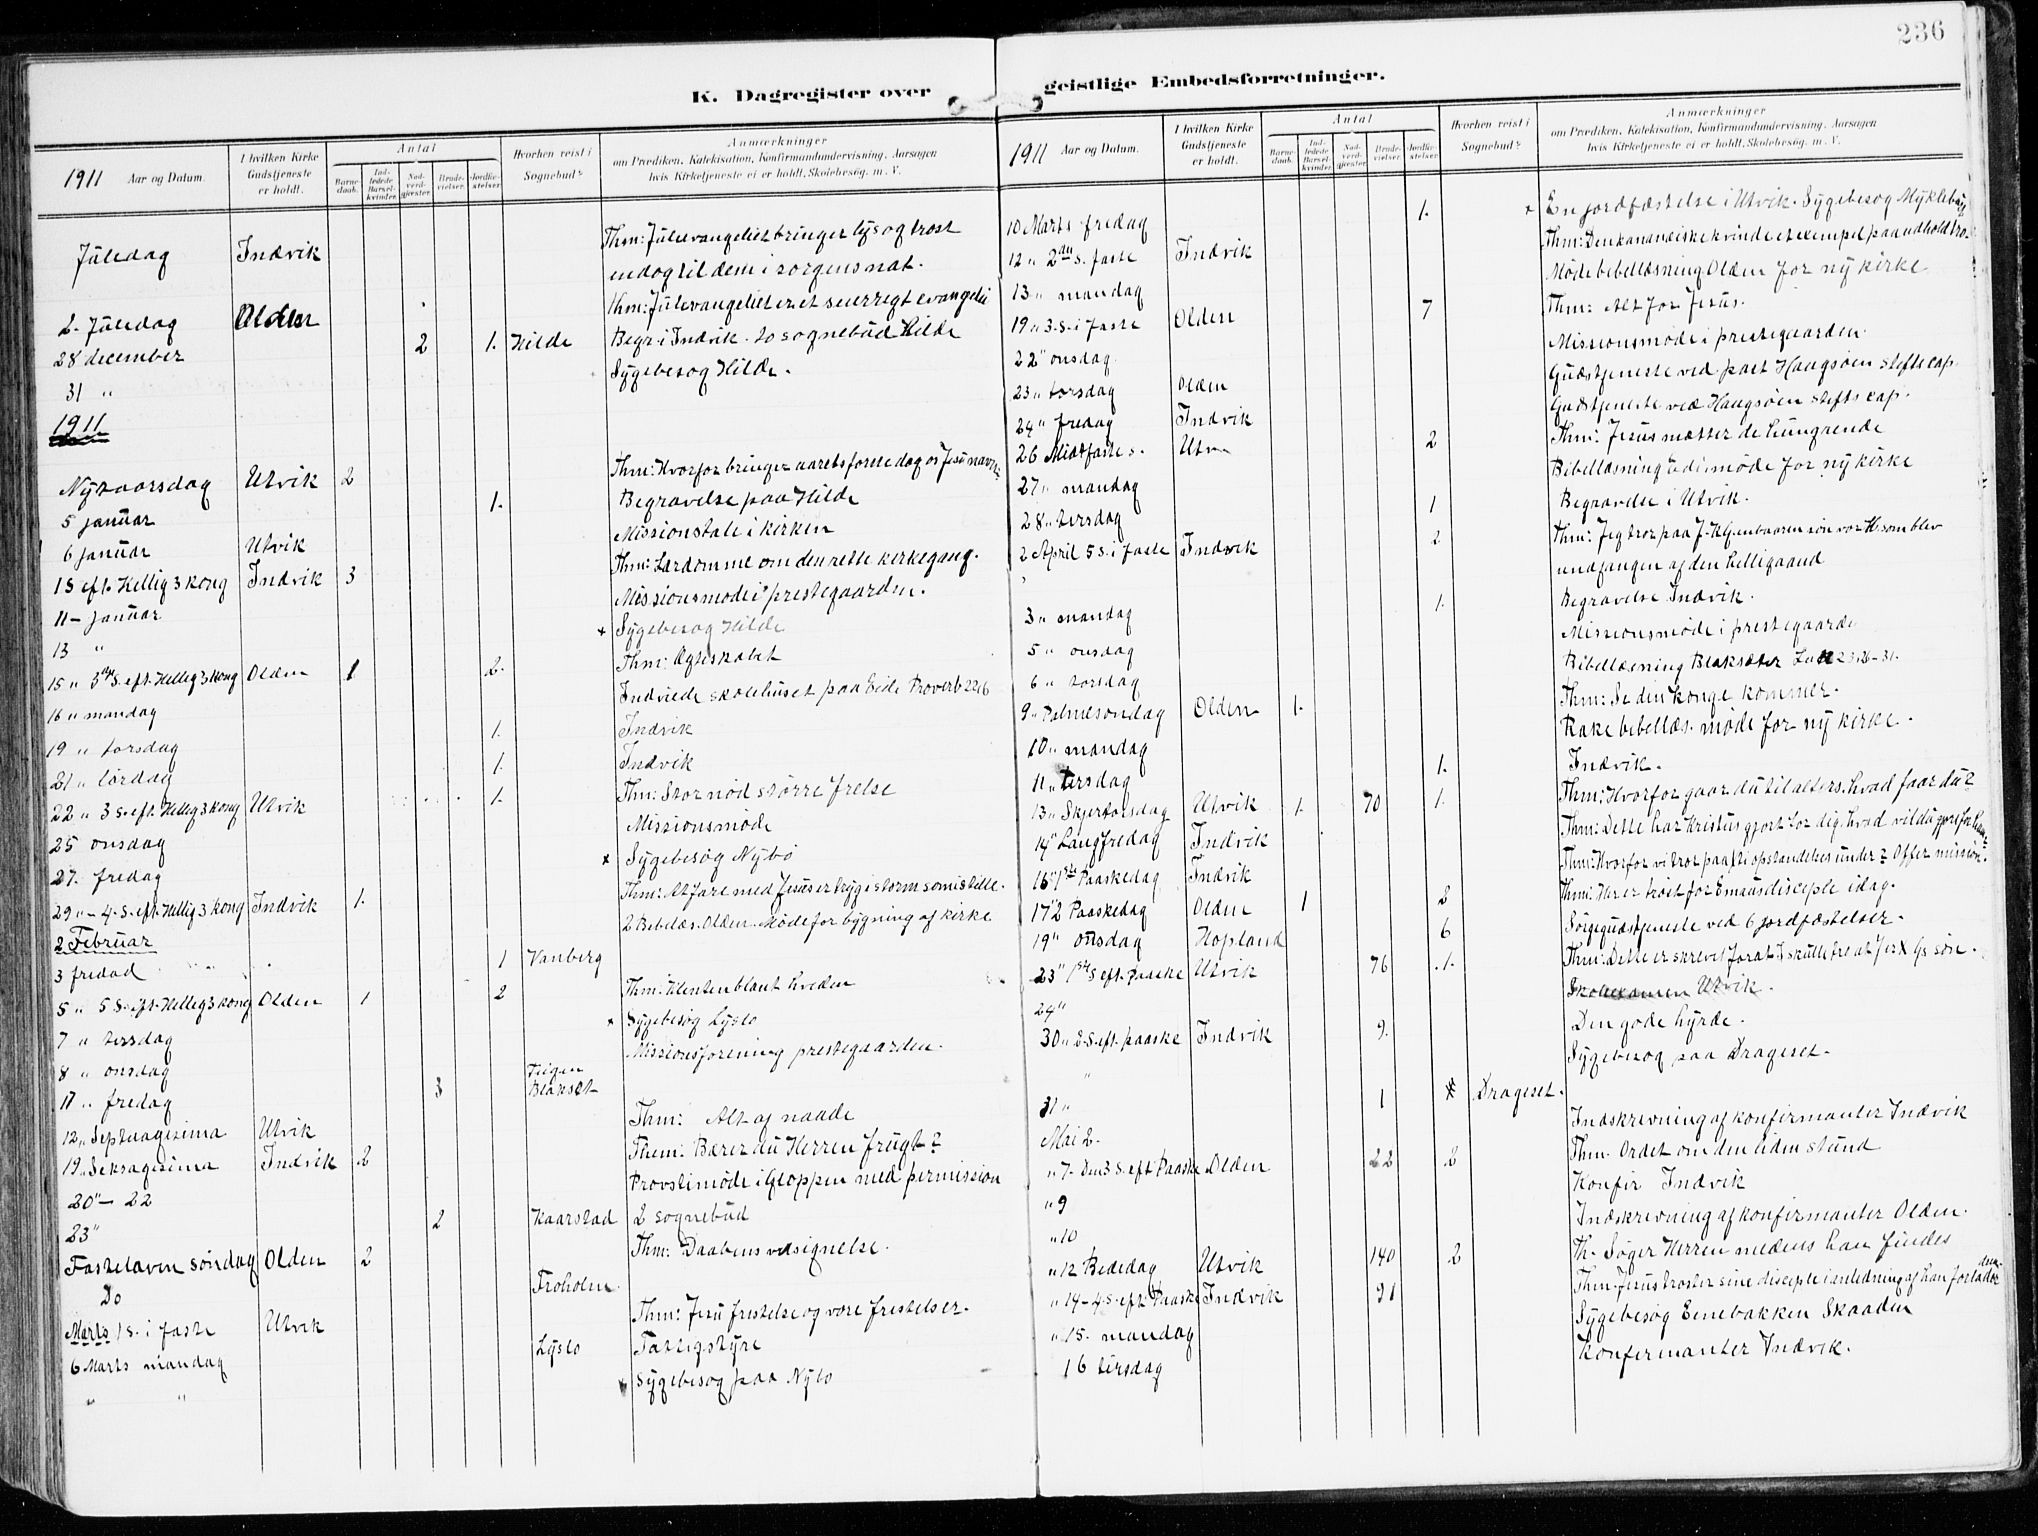 236
K. Dagregister over
1911 Aar og Datum. I hvilken Kirke Gudstjeneste er holdt. Antal Barne-daab. Ind-ledede Barsel-kvinder. Nad-verd-gjester. Brude-vielser. Jordfæ-stelser. Hvorhen reist i Sognebud? Anmærkninger om Prædiken, Katekisation, Konfirmandundervisning, Aarsagen hvis Kirketjeneste ei er holdt, Skolebesøg, m. V.
Juledag Indvik Thm: Julevangeliet bringer lys og trøst
endog til dem i sorgens nat.
2. Juledag Olden Thm: Julevangeliet er et evangeli
28 december 2 1. Hilde Begr. i Indvik. to sognebud Hilde
31 " Sygebesøg Hilde.
1911
Nytaarsdag Utvik 2 Thm: Hvorfor bringer aarets første dag os Jesu navn?
5 januar 1. Begravelse paa Hilde
6 januar Utvik Missionstale i kirken
1 S eft. Hellig 3 kong Indvik 3 Thm: Lærdomme om den rette kirkegang.
11 - januar Missionsmøde i prestegaarden.
13 " x Sygebesøg Hilde
15 " S. eft. Hellig 3 kong Olden 1 2. Thm: Ægteskabet
16 " mandag Indviede skolehuset paa Eide Proverb 22.6
19 " torsdag 1. Indvik
21 " lørdag 1. Indvik
22 " 3 S. eft. Hellig 3 kong Utvik 1. Thm: Stor nød større frelse
25 onsdag Missionsmøde
27. fredag x Sygebesøg Nybø
29 " - 4 S. eft. Hellig 3 kong Indvik 1. Thm: At fare med Jesus er tryg i storm som i stille.
2 Februar 2 Bibelæs. Olden. Møde for bygning af kirke
3 fredad 1 Vanberg
5 " 5 S. eft. Hellig 3 kong Olden 1 2 Thm: Klinten blant hveden
7 " tirsdag x Sygebesøg Lyslo
8 " onsdag Missionsforening prestegaarden.
17 " fredag 3 Teigen Blaksæt
12 " Septuagesima Utvik Thm: Alt af naade
19. Seksagesima Indvik 2 Them: Bærer du Herren frugt?
20" - 22 Provstimøde i Gloppen med permission
23" 2 Kaarstad 2 sognebud
Fastelaven søndag Olden 2 Thm: Daabens velsignelse.
Do Troholm
Marts 1 S. i faste Utvik Thm: Jesu fristelse og vore fristelser.
6 Marts mandag Lyslo Fattigstyre
" " Sygebesøg paa Nybø
geistlige Embedsforretninger.
1911 Aar og Datum. I hvilken Kirke Gudstjeneste er holdt. Antal Barne-daab. Ind-ledede Barsel-kvinder. Nad-verd-gjester. Brude-vielser. Jordfæ-stelser. Hvorhen reist i Sognebud? Anmærkninger om Prædiken, Katekisation, Konfirmandundervisning, Aarsagen hvis Kirketjeneste ei er holdt, Skolebesøg, m. V.
10 Marts fredag 1. x En jordfæstelse i Utvik. Sygebesøg Myklebust
12 " 2den S. faste Indvik Thm: Den kananæiske kvinde et exempel paa udhold
13 " mandag Møde bibellæsning Olden for ny kirke
19 " 3. S. i faste Olden 7 Thm: Alt for Jesus.
22 " onsdag Missionsmøde i prestegaarden.
23 " torsdag Olden Gudstjeneste ved past Haugsøen stifts cap.
24 " fredag Indvik Gudstjeneste ved Haugsøen stifts cap.
26 Midtfaste s. Utv 2 Thm: Jesus mætter de hungrende
27 " mandag Bibellæsning møde for ny kirke
28 " tirsdag 1 Begravelse i Utvik.
2 April 5 S. i faste Indvik 2 Thm: Jeg tror paa J. K. G. enbaaren søn vor H. som blev
undfangen af den helligaand
3 " mandag 1. Begravelse Indvik.
5 " onsdag Missionsmøde i prestegaarde
6 " torsdag Bibellæsning Blaksæter Luk 23.26-31.
9 " Palmesøndag Olden 1. Thm: Se din konge kommer.
10 " mandag Rake bibellæs. møde for ny kirke.
11 " tirsdag 1. Indvik.
13 " Skjærtorsdag Utvik 1. 70 1. Thm: Hvorfor gaar du til alters, hvad faar du?
14 " Langfredag Indvik Thm: Dette har Kristus gjort for dig, hvad vil du gjøre for ham?
16 " 1ste Paaskedag Indvik Thm: Hvorfor vi tror paa opstandelses under? Offer mission.
17 " 2 Paaskedag Olden 1 2 Thm: Her er trøst for Emausdisciple idag.
19 " onsdag Hopland 6 Sørgegudstjeneste ved 6 jordfæstelser.
23 " 1ste S eft. paaske Utvik 76 1. Thm: Dette er skrevet forat I skulle tro at J er X Gs søn.
24 " Skoleexamen Utvik.
30 " 2. S. eft. paaske Indvik 9. Den gode hyrde.
" Sygebesøg paa Drageset.
31 " 1 Drageset.
Mai 2. Indskrivning af konfirmanter Indvik
" 7. Den 3 S. eft Paaske Olden 22 2 Thm. Ordet om den liden stund
" 9 Konfir Indvik
" 10 Indskrivning af konfirmanter Olden.
" 12 Bededag Utvik 140 2 Th. Søger Herren medens han findes
" 14 - 4. S. eft Paaske Indvik 91 Thm Jesus trøster sine disciple i anledning af han forlader dem.
" 15. mandag Sygebesøg Eenebakken Skaaden
16 tirsdag Konfirmanter Indvik.